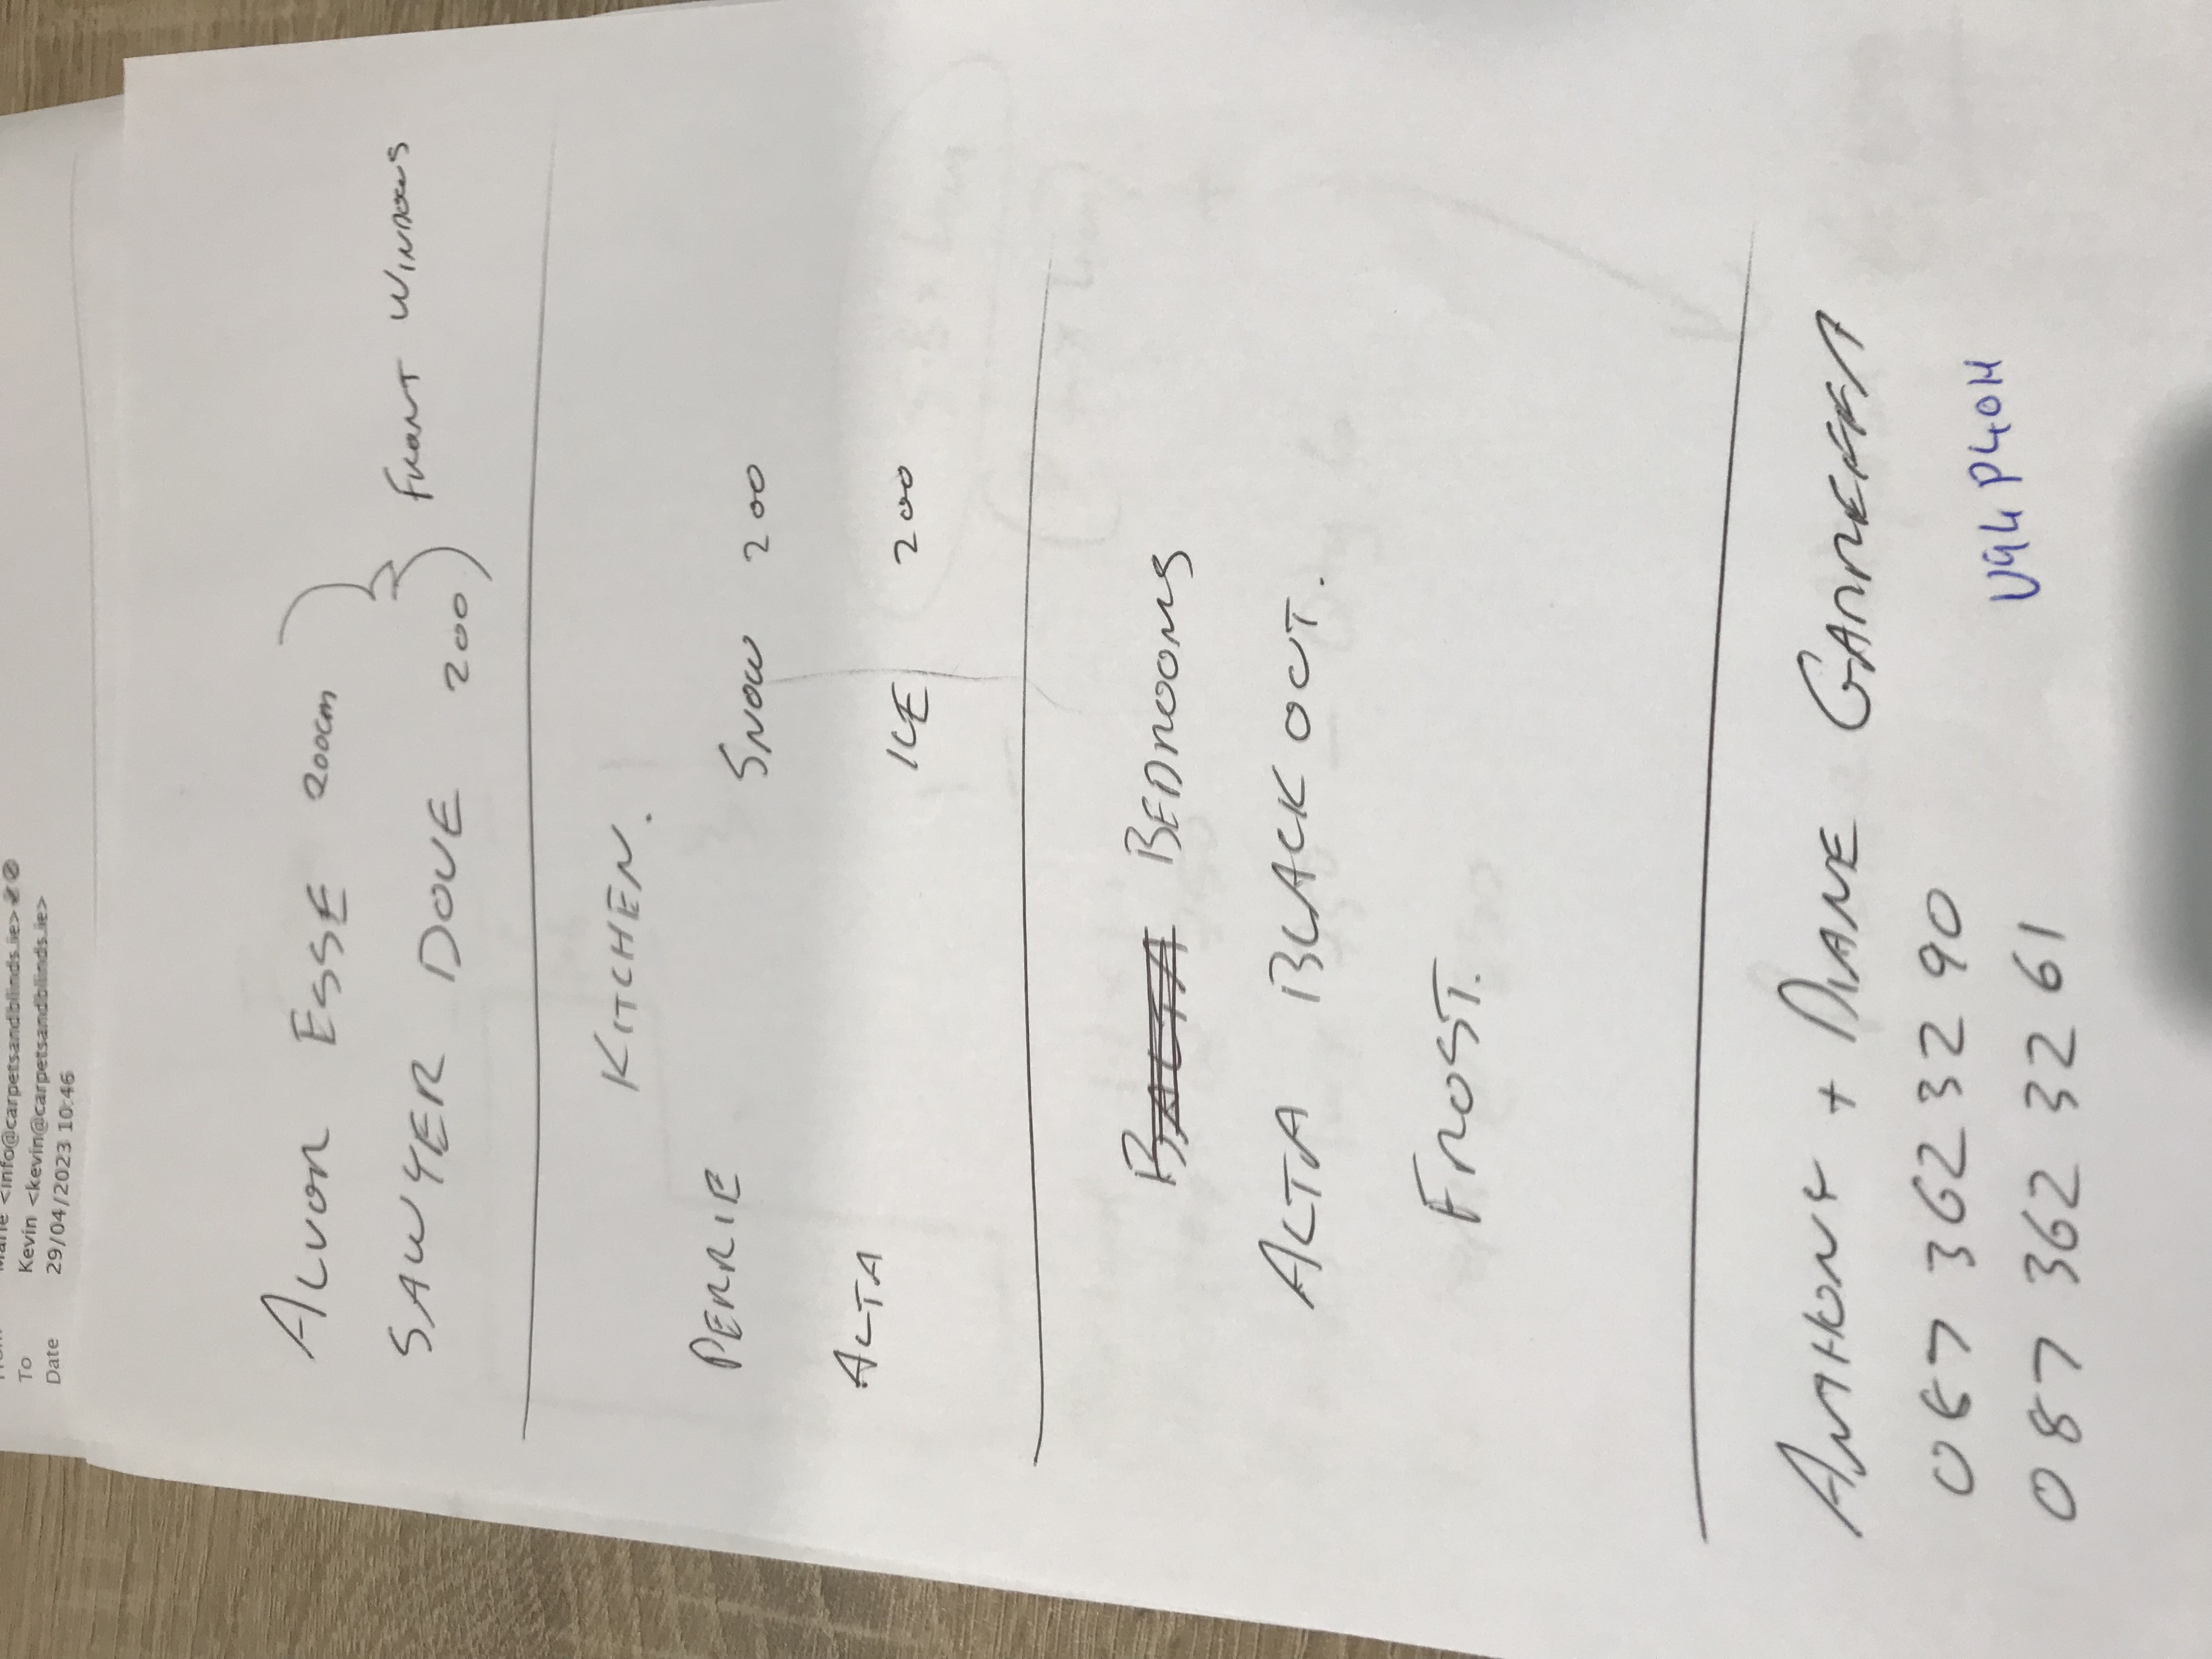 <info@carpetsandblinds.ie>
To Kevin <kevin@carpetsandblinds.ie>
Date 29/04/2023 10:46
ALVOR ESSE 200cm
SAWYER DOVE 200
FRONT WINDOWS
KITCHEN.
PERRIE SNOW 200
ALTA ICE 200
BEDROOMS
ALTA BLACK OUT.
FROST.
ANTHONY + DIANE
087 362 32 90
V94 P40H
087 362 32 61